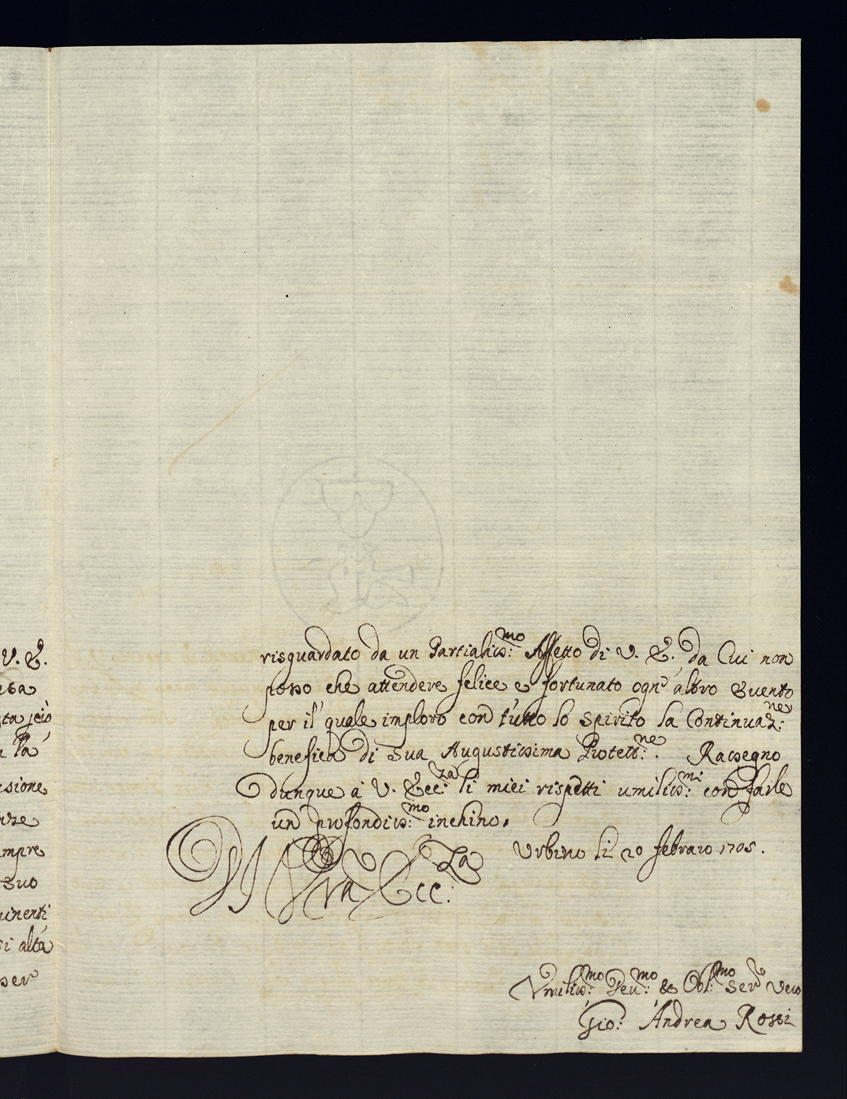 V. E.
a
sione
nze
mpre
Suo
inenti
si altà
per
risguardato da un Partialis:mo Affetto di V. E. da Cui non
posso che attendere felice e fortunato ogn' altro Evento
per il quale imploro con tutto lo Spirito la Continuaz:ne
benefica di Sua Augustissima Protett:ne. Rassegno
dunque à V. Ecc:za li miei rispetti umilis:mi con farle
un profondis:mo inchino.
Urbino li 20 febraro 1705.
Di Vra Ecc:za
Vmilis:mo Deu:mo & Obl:mo Ser.e Vero
Gio: Andrea Rossi